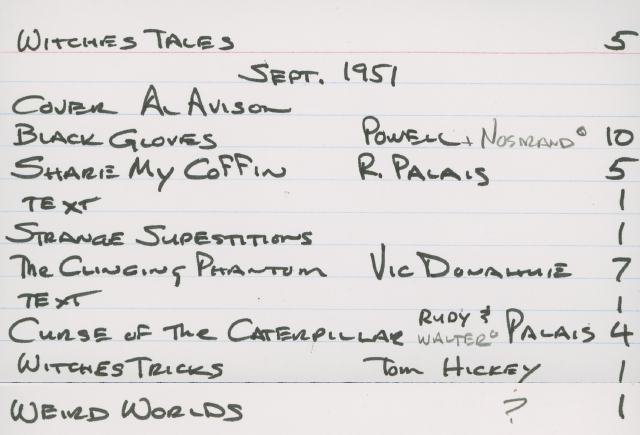 WITCHES TALES 5
SEPT. 1951
COVER AL AVISON
BLACK GLOVES POWELL + NOSTRAND° 10
SHARE MY COFFIN R. PALAIS 5
TEXT 1
STRANGE SUPESTITIONS 1
The CLINGING PHANTOM VIC DONAHUE 7
TEXT 1
CURSE OF THE CATERPILLAR RUDY & WALTER° PALAIS 4
WITCHES TRICKS TOM HICKEY 1
WEIRD WORLDS ? 1